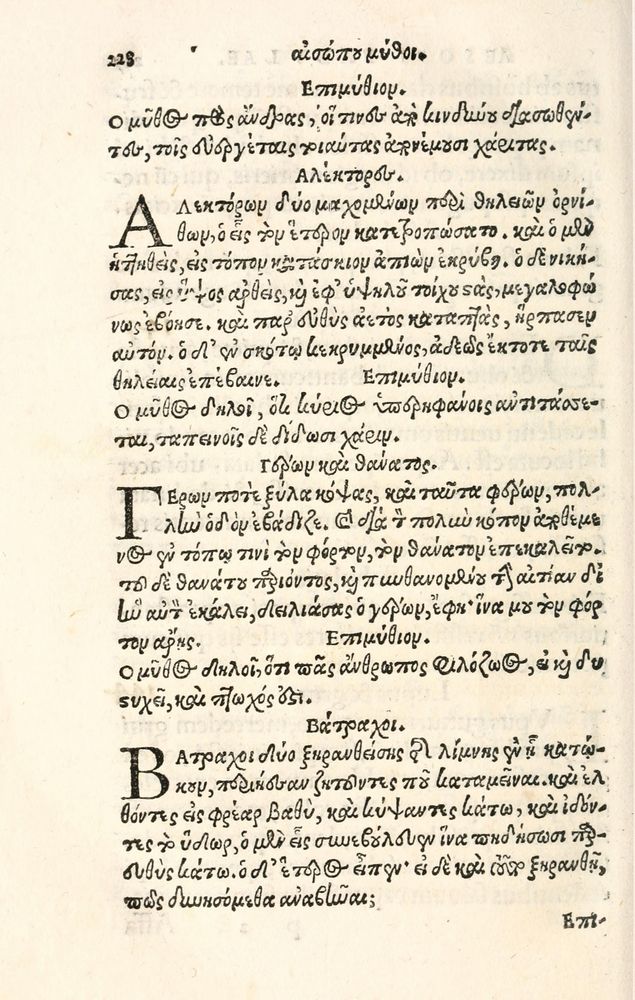 228 αἰσώπου μῦθοι.
Επιμύθιον.
Ο μῦθος πρὸς ἄνδρας, οἵ τινες ἀπὸ κινδύνου διασωθέν-
τες, τοῖς εὐεργέταις τοιαύτας ἀπονέμουσι χάριτας.
Αλέκτορες.
ΑΛεκτόρων δύο μαχομένων περὶ θηλειῶν ὀρνί-
θων, ὁ εἷς τὸν ἕτερον κατετροπώσατο. καὶ ὁ μὲν
ἡττηθεὶς, εἰς τόπον κατάσκιον ἀπιὼν ἐκρύβη. ὁ δὲ νική-
σας, εἰς ὕψος ἀρθεὶς, καὶ ἐφ' ὑψηλοῦ τοίχου στὰς, μεγαλοφώ
νως ἐβόησε. καὶ παρ' εὐθὺς ἀετὸς καταπτὰς, ἥρπασεν
αὐτόν. ὁ δ' ἐν σκότῳ κεκρυμμένος, ἀδεῶς ἔκτοτε ταῖς
θηλείαις ἐπέβαινε. Επιμύθιον.
Ο μῦθος δηλοῖ, ὅτι κύριος ὑπερηφάνοις ἀντιτάσσε-
ται, ταπεινοῖς δὲ δίδωσι χάριν.
Γέρων καὶ θάνατος.
ΓΕρων ποτὲ ξύλα κόψας, καὶ ταῦτα φέρων, πολ-
λὴν ὁδὸν ἐβάδιζε. καὶ διὰ τὸν πολὺν κόπον ἀποθέμε
νος ἐν τόπῳ τινὶ τὸν φόρτον, τὸν θάνατον ἐπεκαλεῖτο.
τοῦ δὲ θανάτου παριόντος, καὶ πυνθανομένου τὴν αἰτίαν δι'
ἣν αὐτὸν ἐκάλει, δειλιάσας ὁ γέρων, ἔφη· ἵνα μου τὸν φόρ
τον ἄρῃς. Επιμύθιον.
Ο μῦθος δηλοῖ, ὅτι πᾶς ἄνθρωπος φιλόζωος, εἰ καὶ δυ
στυχεῖ, καὶ πτωχός ἐστι.
Βάτραχοι.
ΒΑτραχοι δύο ξηρανθείσης τῆς λίμνης ἐν ᾗ κατῴ-
κουν, περιῄεσαν ζητοῦντες ποῦ καταμεῖναι. καὶ ἐλ
θόντες εἰς φρέαρ βαθὺ, καὶ κύψαντες κάτω, καὶ ἰδόν-
τες τὸ ὕδωρ, ὁ μὲν εἷς συνεβούλευεν ἵνα πηδήσωσι παρ-
ευθὺς κάτω. ὁ δ' ἕτερος εἶπεν· εἰ δὲ καὶ τοῦτο ξηρανθῇ,
πῶς δυνησόμεθα ἀναβῆναι;
Επι-